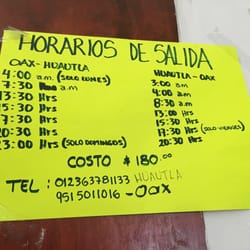 HORARIOS DE SALIDA
OAX-HUAUTLA
4:00 a.m. (SOLO LUNES)
7:30 a.m
13:30 Hrs
15:00 Hrs
17:00 Hrs
20:30 Hrs
23:00 Hrs (SOLO DOMINGOS)
HUAUTLA-OAX
3:00 a.m.
4:00 a.m.
8:30 a.m
13:00 Hrs
15:30 Hrs
17:30 Hrs (SOLO VIERNES)
20:30 Hrs
COSTO $180.00
TEL: 012363781133 HUAUTLA
9515011016-OAX